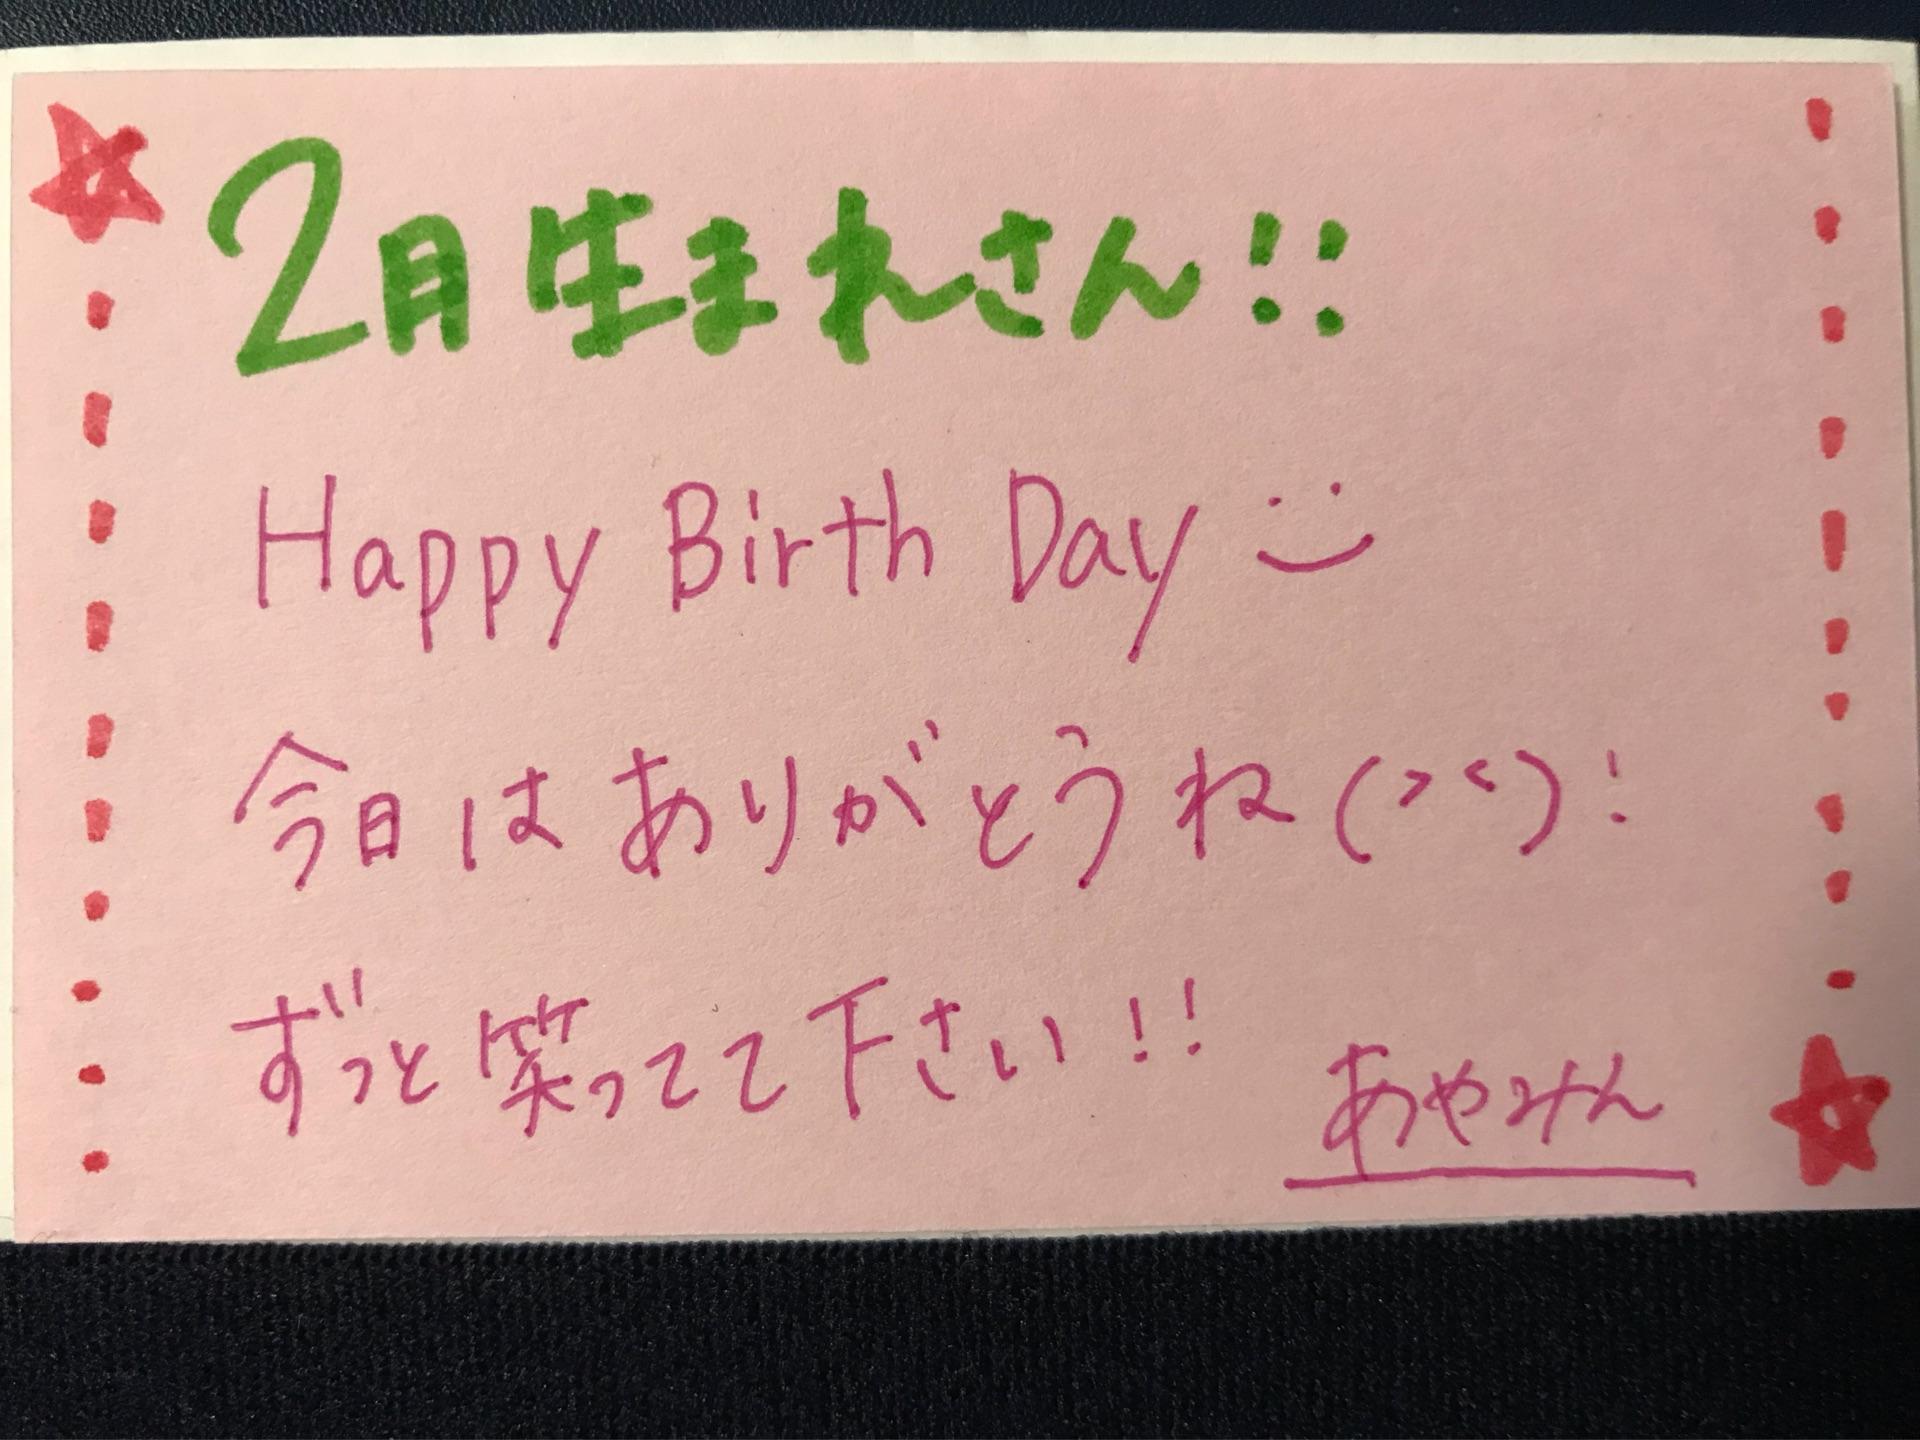 2月生まれさん!!
Happy Birth Day :)
今日はありがとうね(><)!
ずっと笑ってて下さい!!
あやみん